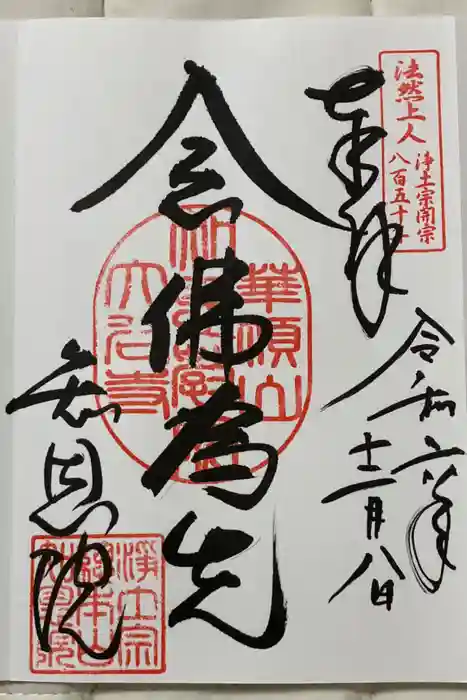 法然上人
浄土宗開宗
八百五十年
奉拝
令和六年
十二月八日
念佛為先
華頂山
大谷寺
知恩院
浄土宗
總本山
知恩院